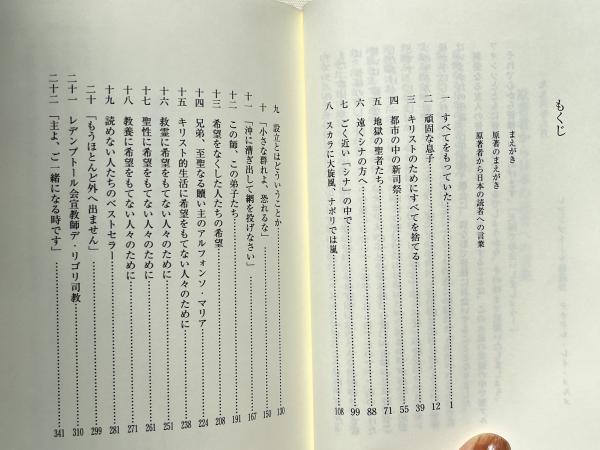 もくじ
まえがき
原著のまえがき
原著者から日本の読者への言葉
一 すべてをもっていた 1
二 頑固な息子 12
三 キリストのためにすべてを捨てる 39
四 都市の中の新司祭 55
五 地獄の聖者たち 71
六 遠くシナの方へ 88
七 ごく近い「シナ」の中で 99
八 スカラに大旋風、ナポリでは嵐 108
九 設立とはどういうことか 130
十 「小さな群れよ、恐れるな」 150
十一 「沖に漕ぎ出して網を投げなさい」 167
十二 この師、この弟子たち 191
十三 希望をなくした人たちの希望 208
十四 兄弟、至聖なる贖い主のアルフォンソ・マリア 224
十五 キリスト的生活に希望をもてない人々のために 238
十六 救霊に希望をもてない人々のために 251
十七 聖性に希望をもてない人々のために 261
十八 教養に希望をもてない人々のために 271
十九 読めない人たちのベストセラー 281
二十 「もうほとんど外へ出ません」 299
二十一 レデンプトール会宣教師デ・リゴリ司教 310
二十二 「主よ、ご一緒になる時です」 341